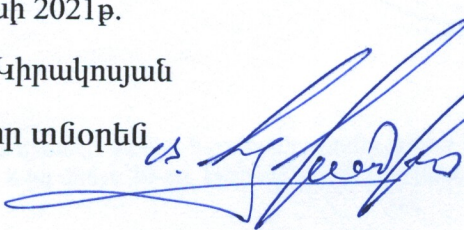 սի 2021թ.
Կիրակոսյան
որ տնօրեն